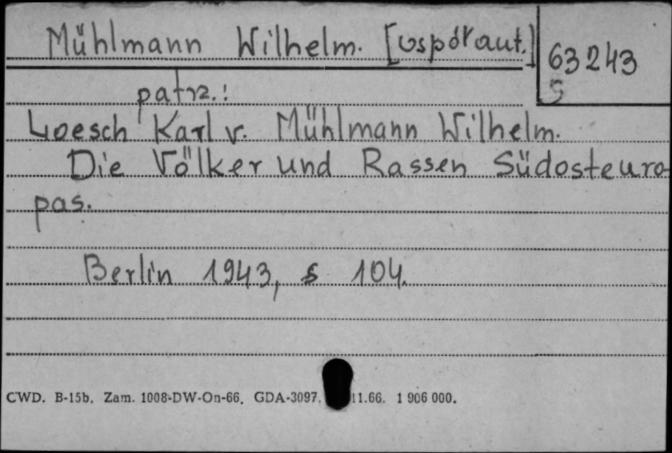 Mühlmann Wilhelm. [współaut.]
63243
S
patrz.:
Loesch Karl v. Mühlmann Wilhelm.
Die Völker und Rassen Südosteuro-
pas.
Berlin 1943, s 104.
CWD. B-15b. Zam. 1008-DW-On-66. GDA-3097. 11.66. 1 906 000.